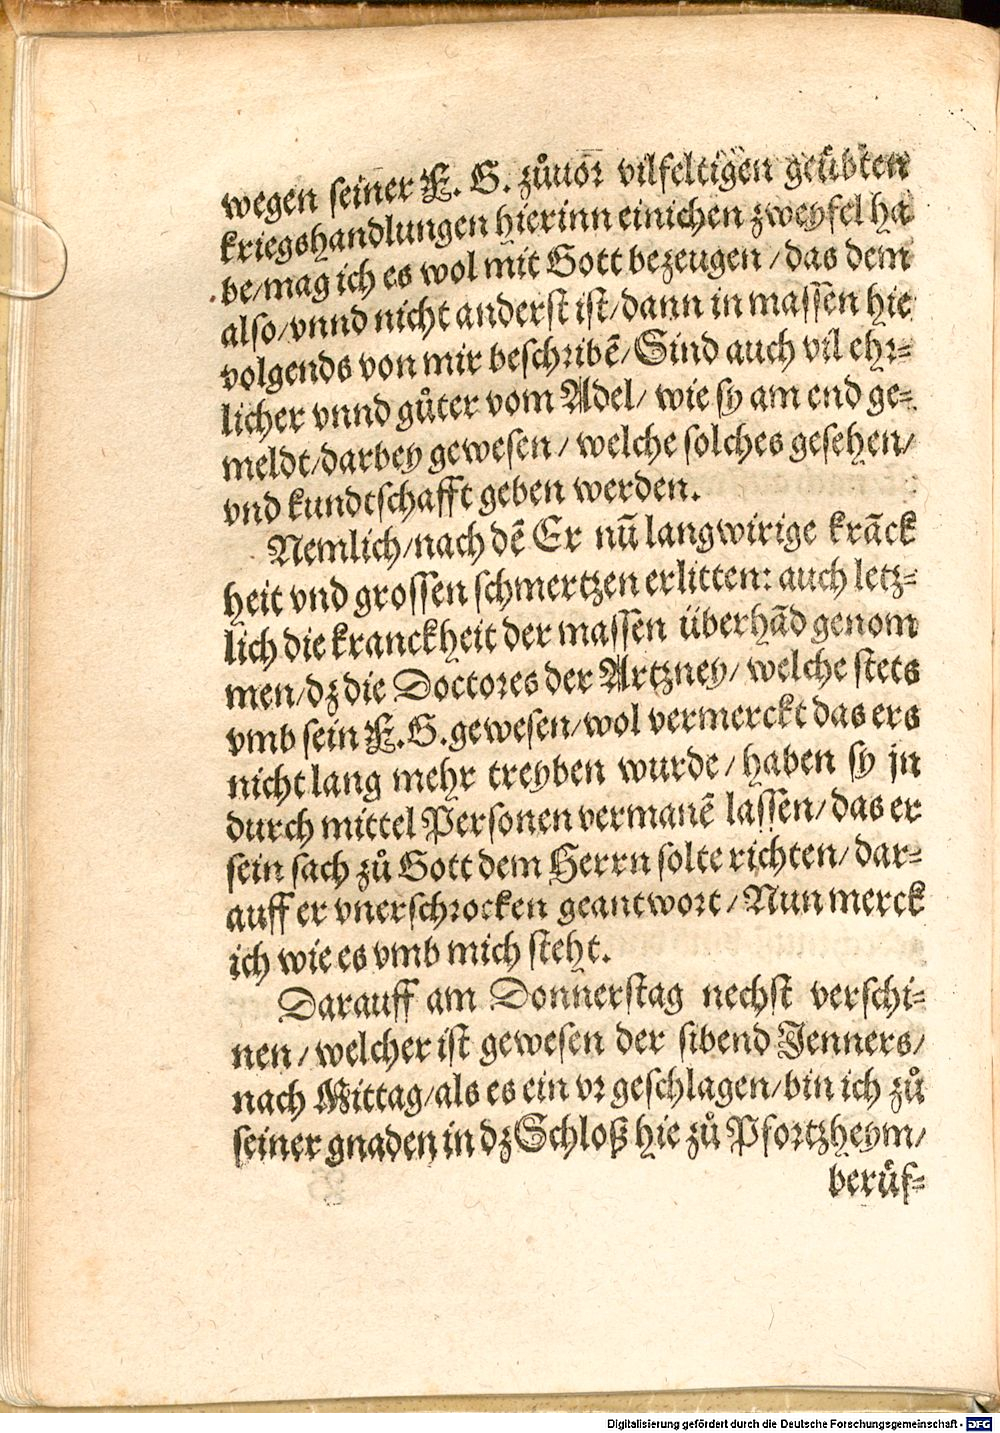 wegen seiner F. G. zůuor vilfeltigen geübten
kriegshandlungen hierinn einichen zweyfel ha
be/mag ich es wol mit Gott bezeugen/das dem
also/vnnd nicht anderst ist/dann in massen hie
volgends von mir beschribē/Sind auch vil ehr-
licher vnnd gůter vom Adel/ wie sy am end ge-
meldt/darbey gewesen/ welche solches gesehen/
vnd kundtschafft geben werden.
Nemlich/nach dē Er nū langwirige krāck
heit vnd grossen schmertzen erlitten: auch letz-
lich die kranckheit der massen überhād genom
men/dz die Doctores der Artzney/ welche stets
vmb sein F.G. gewesen/wol vermerckt das ers
nicht lang mehr treyben wurde/ haben sy jn
durch mittel Personen vermanē lassen/das er
sein sach zů Gott dem Herrn solte richten/ dar-
auff er vnerschrocken geantwort/Nun merck
ich wie es vmb mich steht.
Darauff am Donnerstag nechst verschi-
nen/welcher ist gewesen der sibend Jenners/
nach Mittag/als es ein vr geschlagen/bin ich zů
seiner gnaden in dz Schloß hie zů Pfortzheym/
berůf-
Digitalisierung gefördert durch die Deutsche Forschungsgemeinschaft - DFG